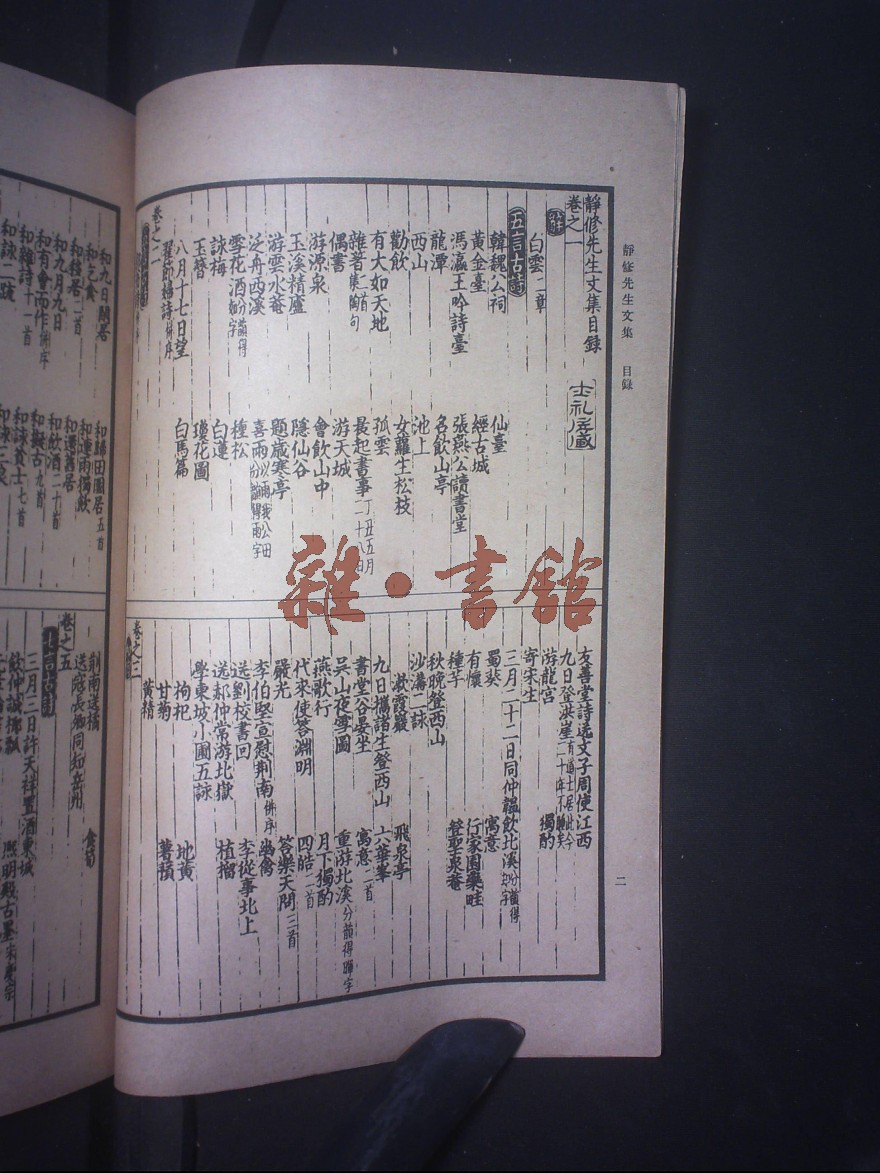 靜修先生文集 目錄
二
靜修先生文集目錄
卷之一
白雲二章
五言古詩
韓魏公祠 仙臺
黃金臺 經古城
馮瀛王吟詩臺 張燕公讀書堂
龍潭 名飲山亭
西山 池上
勸飲 女蘿生松枝
有大如天地 孤雲
雜著集陶句 晨起書事丁丑五月二十八日
偶書 游天城
游源泉 會飲山中
玉溪精廬 隱仙谷
游雲水菴 題歲寒亭
泛舟西溪 喜雨
雪花酒 種松
詠梅 白蓮
玉簪 瓊花圖
八月十七日望 白馬篇
翟節婦詩併序
卷之二
友善堂詩送文子周使江西
九日登洪崖 獨酌
游龍宮
寄宋生
三月二十二日同仲韞飲北溪
蜀葵 寓意
有懷 行家園藥畦
種芋 登聖泉菴
秋晚登西山
沙溝二詠
漱霞巖 飛泉亭
九日攜諸生登西山 六華峯
書堂谷晏坐 寓意二首
吳山夜雪圖 重游北溪分韻得暉字
燕歌行 月下獨酌
代來使答淵明 四皓二首
嚴光 答樂天問三首
李伯堅宣慰荆南併序 幽禽
送劉校書回 李從事北上
送郝仲常游北嶽 植榴
學東坡小圃五詠
枸杞 地黃
甘菊 薯蕷
黃精
卷之三
和九日閒居 和歸田園居五首
和乞食 和連雨獨飲
和移居二首 和還舊居
和九月九日 和飲酒二十首
和有會而作併序 和擬古九首
和雜詩十一首 和詠貧士七首
和詠二疏 和詠三良
荆南送橘 食筍
送寇長卿同知岳州
卷之五
七言古詩
三月三日許天祥置酒東城
飲仲誠椰瓢 熙明殿古墨
雜·書館